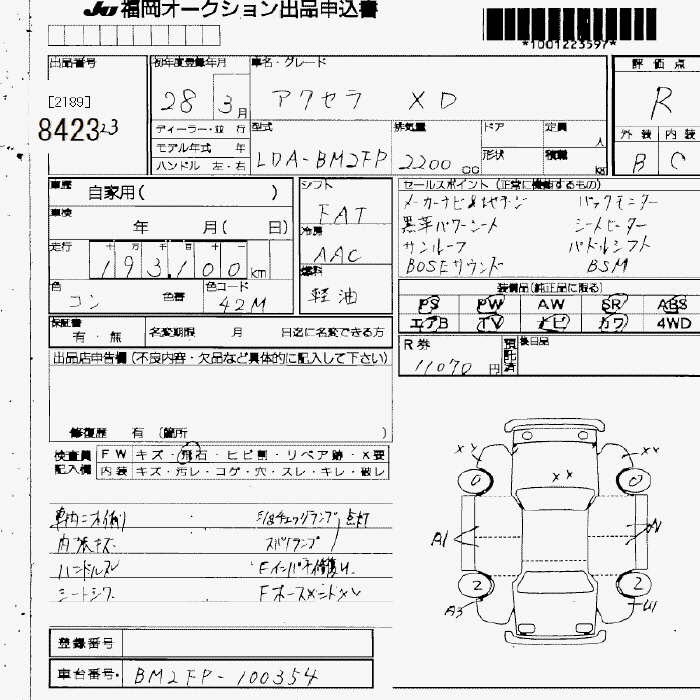 JU 福岡オークション出品申込書
*1001223597*
出品番号
初年度登録年月
車名・グレード
評価点
[2189]
28 3月
アクセラ XD
R
8423 23
ディーラー・並 行
型式
排気量
ドア
定員
人
外装 内装
モデル年式 年
LDA-BM2FP
2200 cc
形状
積載
kg
B C
ハンドル 左・右
車歴
自家用( )
シフト
FAT
セールスポイント (正常に機能するもの)
車検
年 月( 日)
冷房
AAC
メーカーナビ&地デジ バックモニター
黒革パワーシート シートヒーター
走行
十 万 千 百 十
193,100 km
燃料
軽油
サンルーフ パドルシフト
BOSEサウンド BSM
色
コン
色替
色コード
42M
装備品(純正品に限る)
PS PW AW SR ABS
エアB TV ナビ カワ 4WD
保証書
有・無
名変期限 月 日迄に名変できる方
R券
11070 円
預託済
後日品
出品店申告欄 (不良内容・欠品など具体的に記入して下さい)
修復歴 有 (箇所 )
検査員
記入欄
FW キズ・飛石・ヒビ割・リペア跡・X要
内装 キズ・汚レ・コゲ・穴・スレ・キレ・破レ
車内ニオイ有り
チェックランプ 点灯
内張キズ
ハンドルスレ
シートシワ
XX XX XX
0 0
A1
2 2
A3 U1
登録番号
車台番号
BM2FP-100354